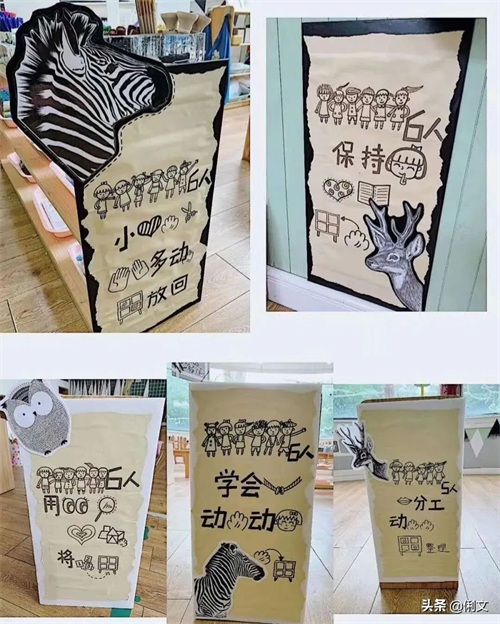 6人
小
多动
放回
6人
保持
6人
用
将
6人
学会
动 动
5人
分工
动
整理
头条 @俐文